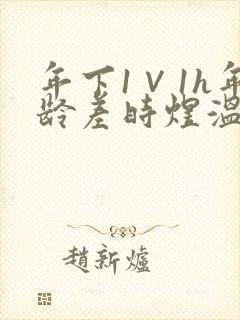 年下1V1h年
龄差時煜温
趙新爐